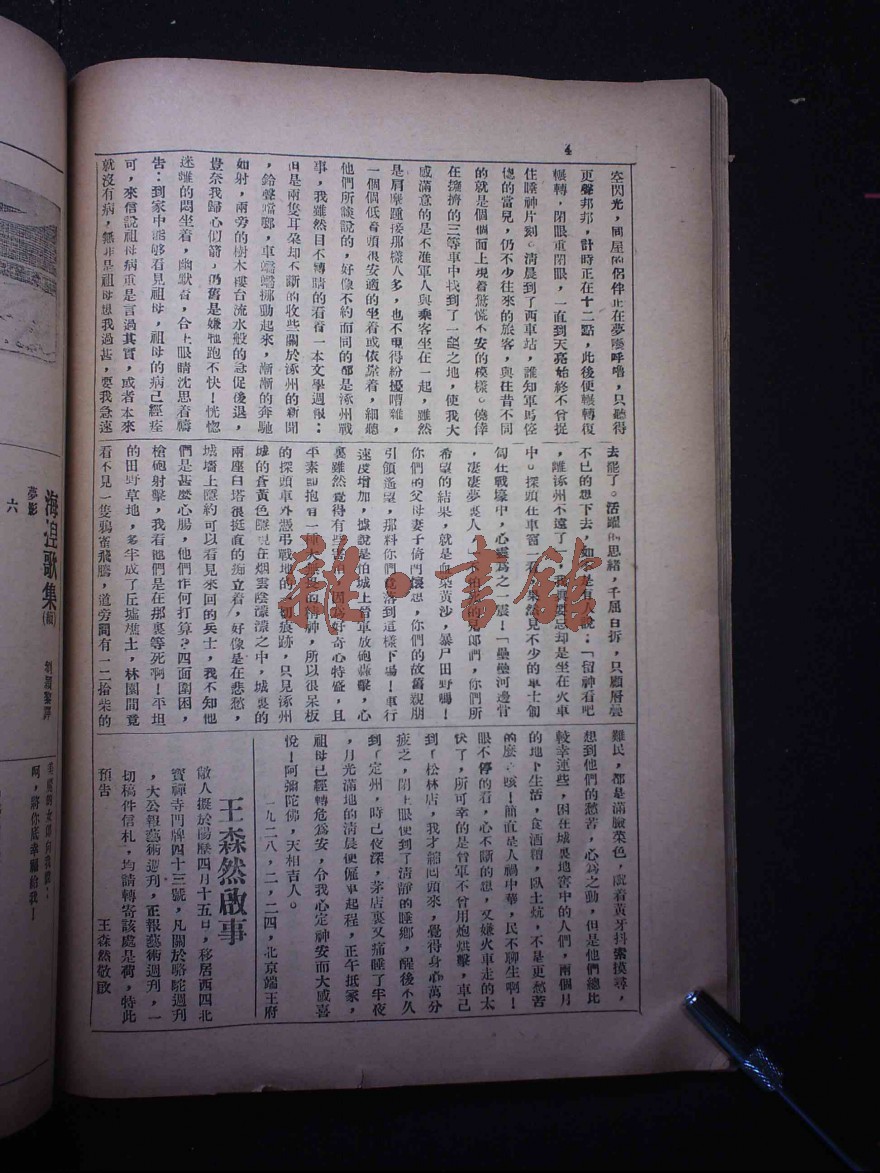 4
空閃光，同屋的侶伴正在夢囈呼嚕，只聽得
更聲邦邦，計時正在十二點，此後便輾轉復
輾轉，閉眼重閉眼，一直到天亮始終不曾捉
住睡神片刻。清晨到了西車站，誰知軍馬倥
偬的當兒，仍不少往來的旅客，與往昔不同
的就是個個面上現着驚慌不安的模樣。僥倖
在擁擠的三等車中找到了一隙之地，使我大
感滿意的是不准軍人與乘客坐在一起，雖然
是肩摩踵接那樣人多，也不覺得紛擾嘈雜，
一個個低着頭很安適的坐着或依靠着，細聽
他們所談說的，好像不約而同的都是涿州戰
事，我雖然目不轉睛的看着一本文學週報；
但是兩隻耳朶却不斷的收些關於涿州的新聞
，鈴聲噹啷，車蠕蠕挪動起來，漸漸的奔馳
如射，兩旁的樹木樓台流水般的急促後退，
豈奈我歸心似箭，仍舊是嫌牠跑不快！恍惚
迷離的悶坐着，幽默着，合上眼睛沈思着禱
告：到家中能够看見祖母，祖母的病已經痊
可，來信說祖母病重是言過其實，或者本來
就沒有病，無非是祖母想我過甚，要我急速
去罷了。活躍的思緒，千屈百折，只顧層疊
不已的想下去，如
，離涿州不遠了
中。探頭在車窗一看，果然見不少的軍士匍
匐在戰壕中，心靈爲之一震！「壘壘河邊骨
，凄凄夢裏人，
希望的結果，就是血染黃沙，暴尸田野嗎！
你們的父母妻子倚門懷想，你們的故舊親朋
引領遙望，那料你們竟落到這樣下場！車行
速度增加，據說是怕城上晉軍放砲轟擊，心
裏雖然覺得有些害怕，因爲好奇心特盛，且
平素即抱有一種大無畏的精神，所以很呆板
的探頭車外憑弔戰地的一切痕跡，只見涿州
城的蒼黃色隱現在烟雲陰濛濛之中，城裏的
兩座白塔很挺直的痴立着，好像是在悲愁，
城墻上隱約可以看見來回的兵士，我不知他
們是甚麼心腸，他們作何打算？四面圍困，
槍砲射擊，我看他們是在那裏等死啊！平坦
的田野草地，多半成了丘墟焦土，林園間竟
看不見一隻鴉雀飛騰，道旁間有一二拾柴的
難民，都是滿臉菜色，齜着黃牙抖索摸尋，
想到他們的愁苦，心爲之動，但是他們總比
較幸運些，困在城裏地窖中的人們，兩個月
的地下生活，食酒糟，臥土炕，不是更愁苦
的麽？咳！簡直是人禍中華，民不聊生啊！
眼不停的看，心不斷的想，又嫌火車走的太
快了，所可幸的是晉軍不曾用炮烘擊，車已
到了松林店，我才縮回頭來，覺得身心萬分
疲乏，閉上眼便到了清靜的睡鄉，醒後不久
到了定州，時已夜深，茅店裏又痛睡了半夜
，月光滿地的清晨便僱車起程，正午抵家，
祖母已經轉危爲安，令我心定神安而大感喜
悅！阿彌陀佛，天相吉人。
一九二八，二，二四，北京端王府
王森然啟事
敝人擬於陽歷四月十五日，移居西四北
寳禪寺門牌四十三號，凡關於駱駝週刊
，大公報藝術週刊，正報藝術週刊，一
切稿件信札，均請轉寄該處是荷，特此
預告
王森然敬啟
海涅歌集(續)
夢影
六
呵，將你底幸屬給我！
雜·書館